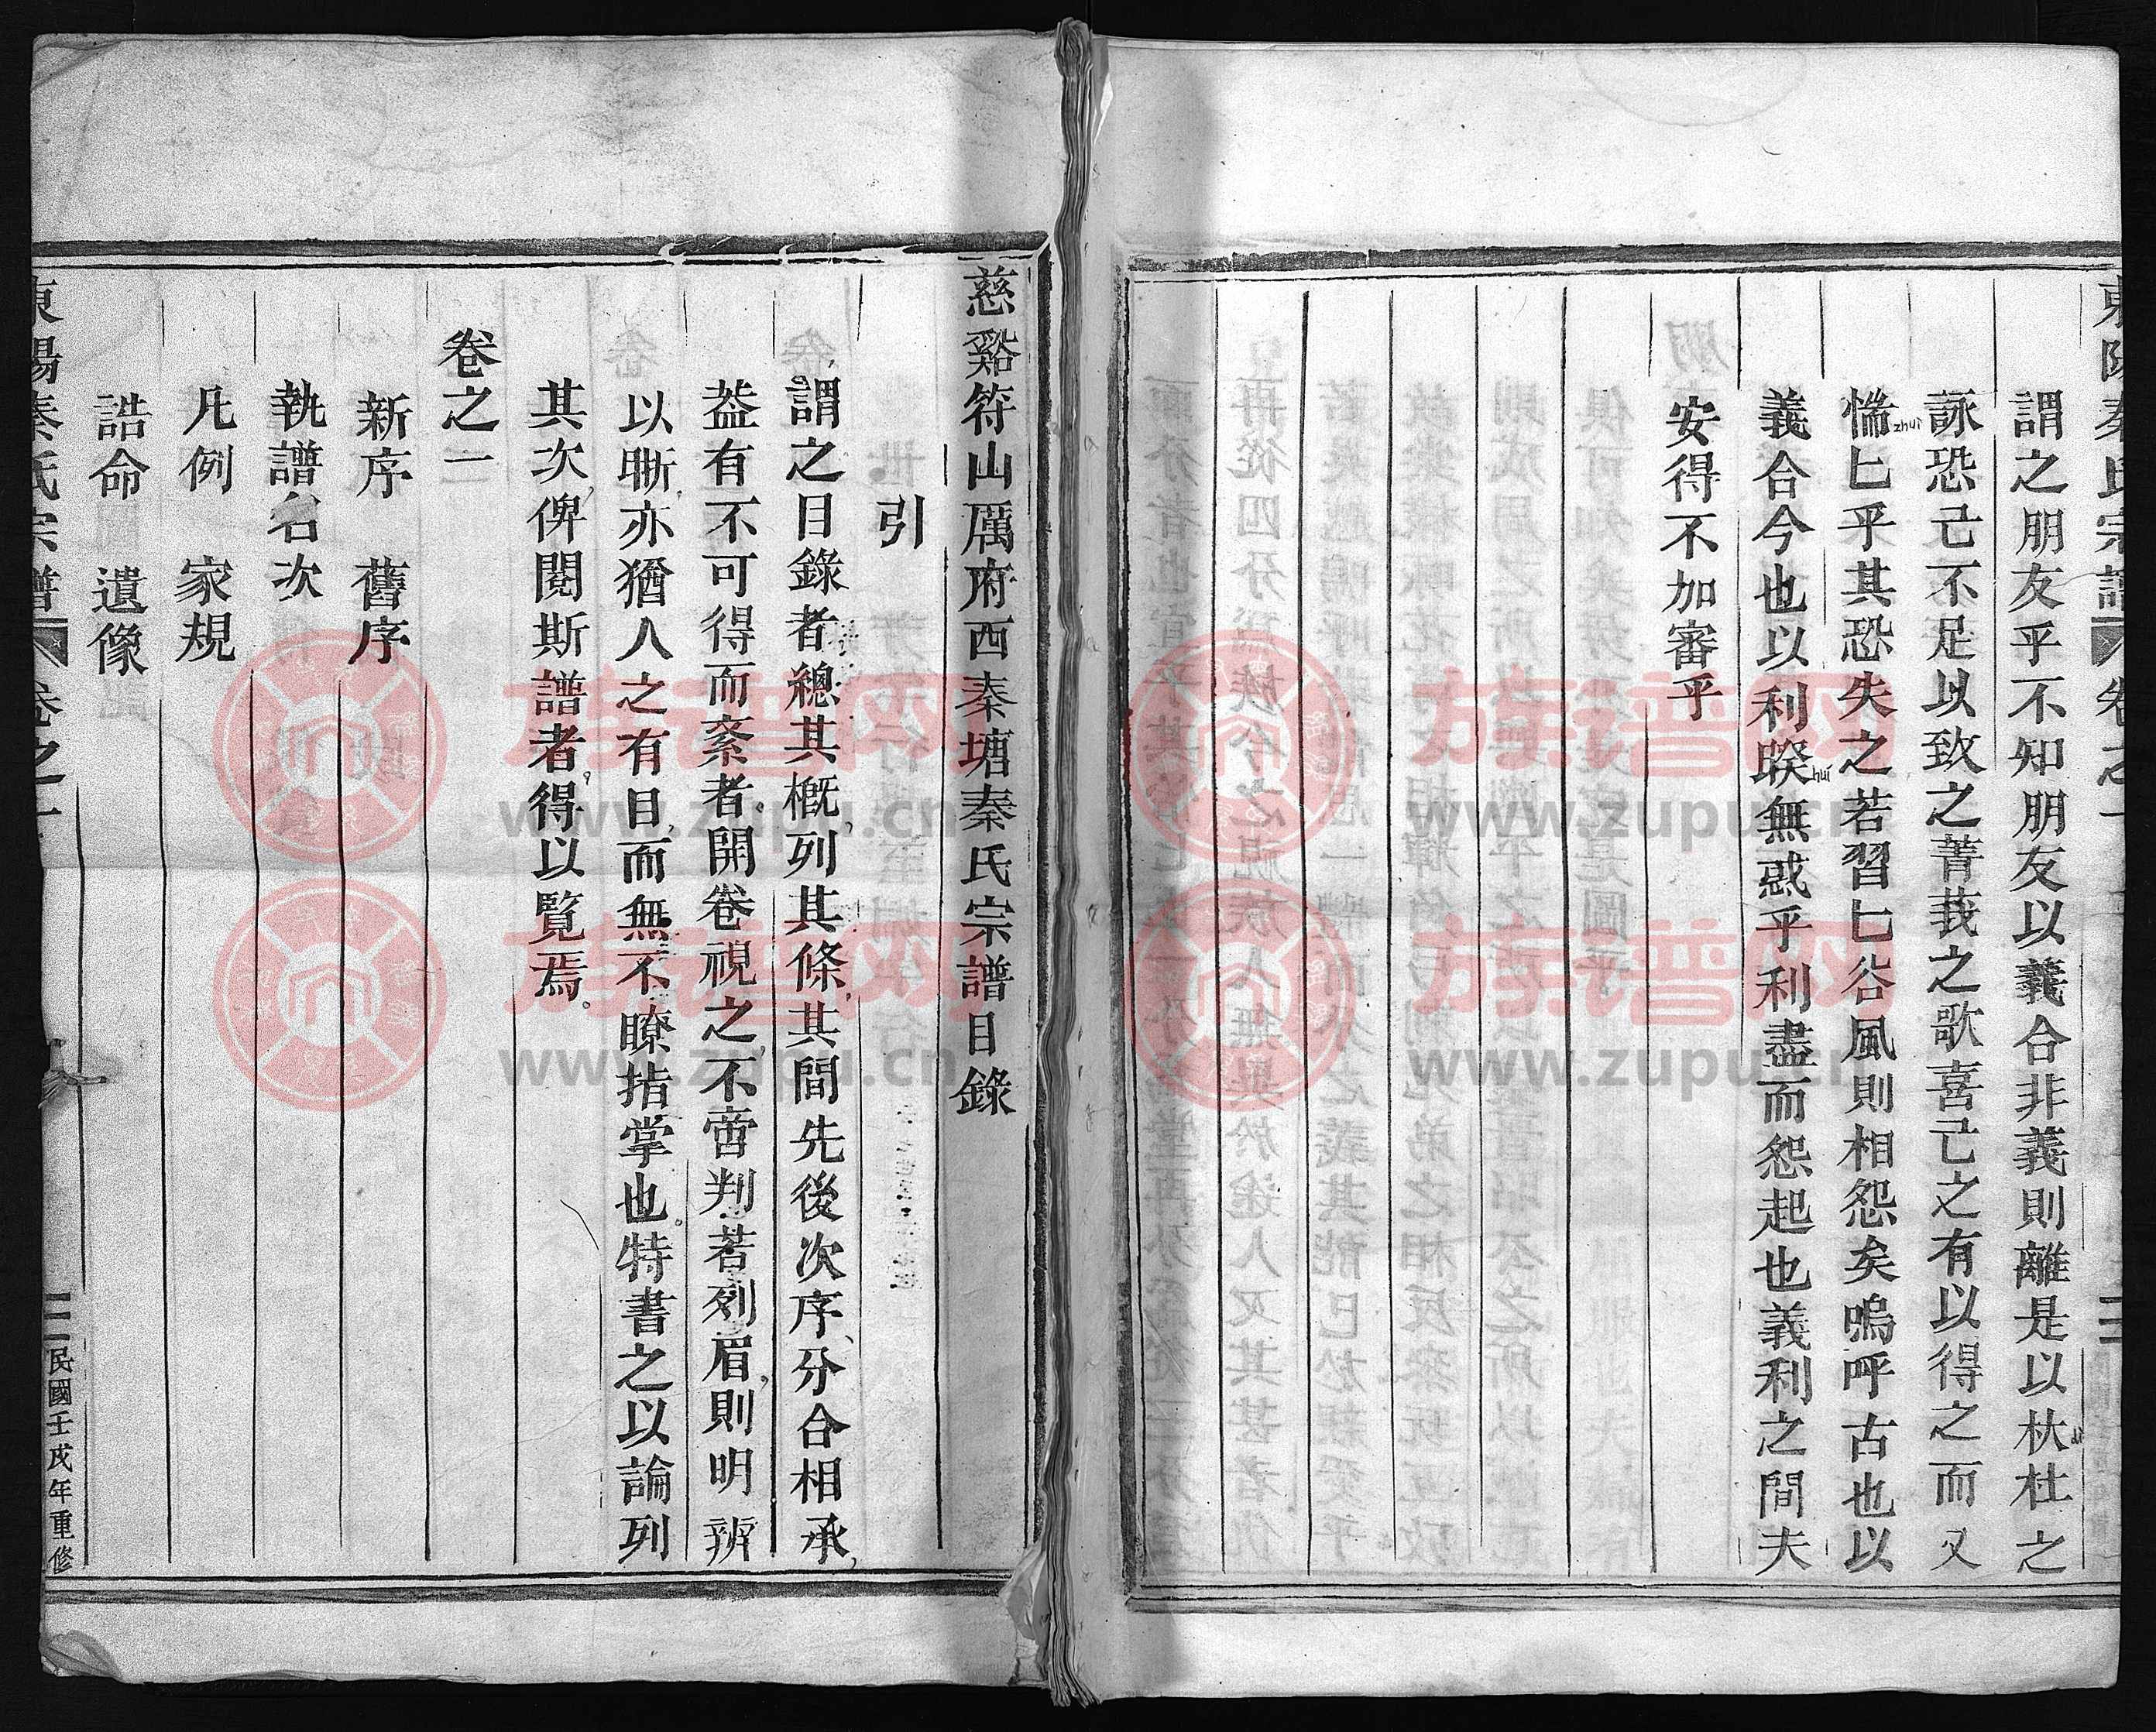 東陽秦氏宗譜 卷之一 二
謂之朋友乎不知朋友以義合非義則離是以杕杜之
詠恐己不足以致之菁莪之歌喜己之有以得之而又
惴匕乎其恐失之若習匕谷風則相怨矣嗚呼古也以
義合今也以利睽無惑乎利盡而怨起也義利之間夫
安得不加審乎
zhuì
huí
di
慈谿符山厲府西秦塘秦氏宗譜目錄
引
謂之目錄者總其概列其條其間先後次序分合相承
葢有不可得而紊者開卷視之不啻判若列眉則明辨
以晣亦猶人之有目而無不瞭指掌也特書之以論列
其次俾閱斯譜者得以覽焉
卷之一
新序 舊序
執譜名次
凡例 家規
誥命 遺像
東陽秦氏宗譜 卷之一 二 民國壬戌年重修
族谱网
www.zupu.cn
族谱网
www.zupu.cn
族谱网
www.zupu.cn
族谱网
www.zupu.cn